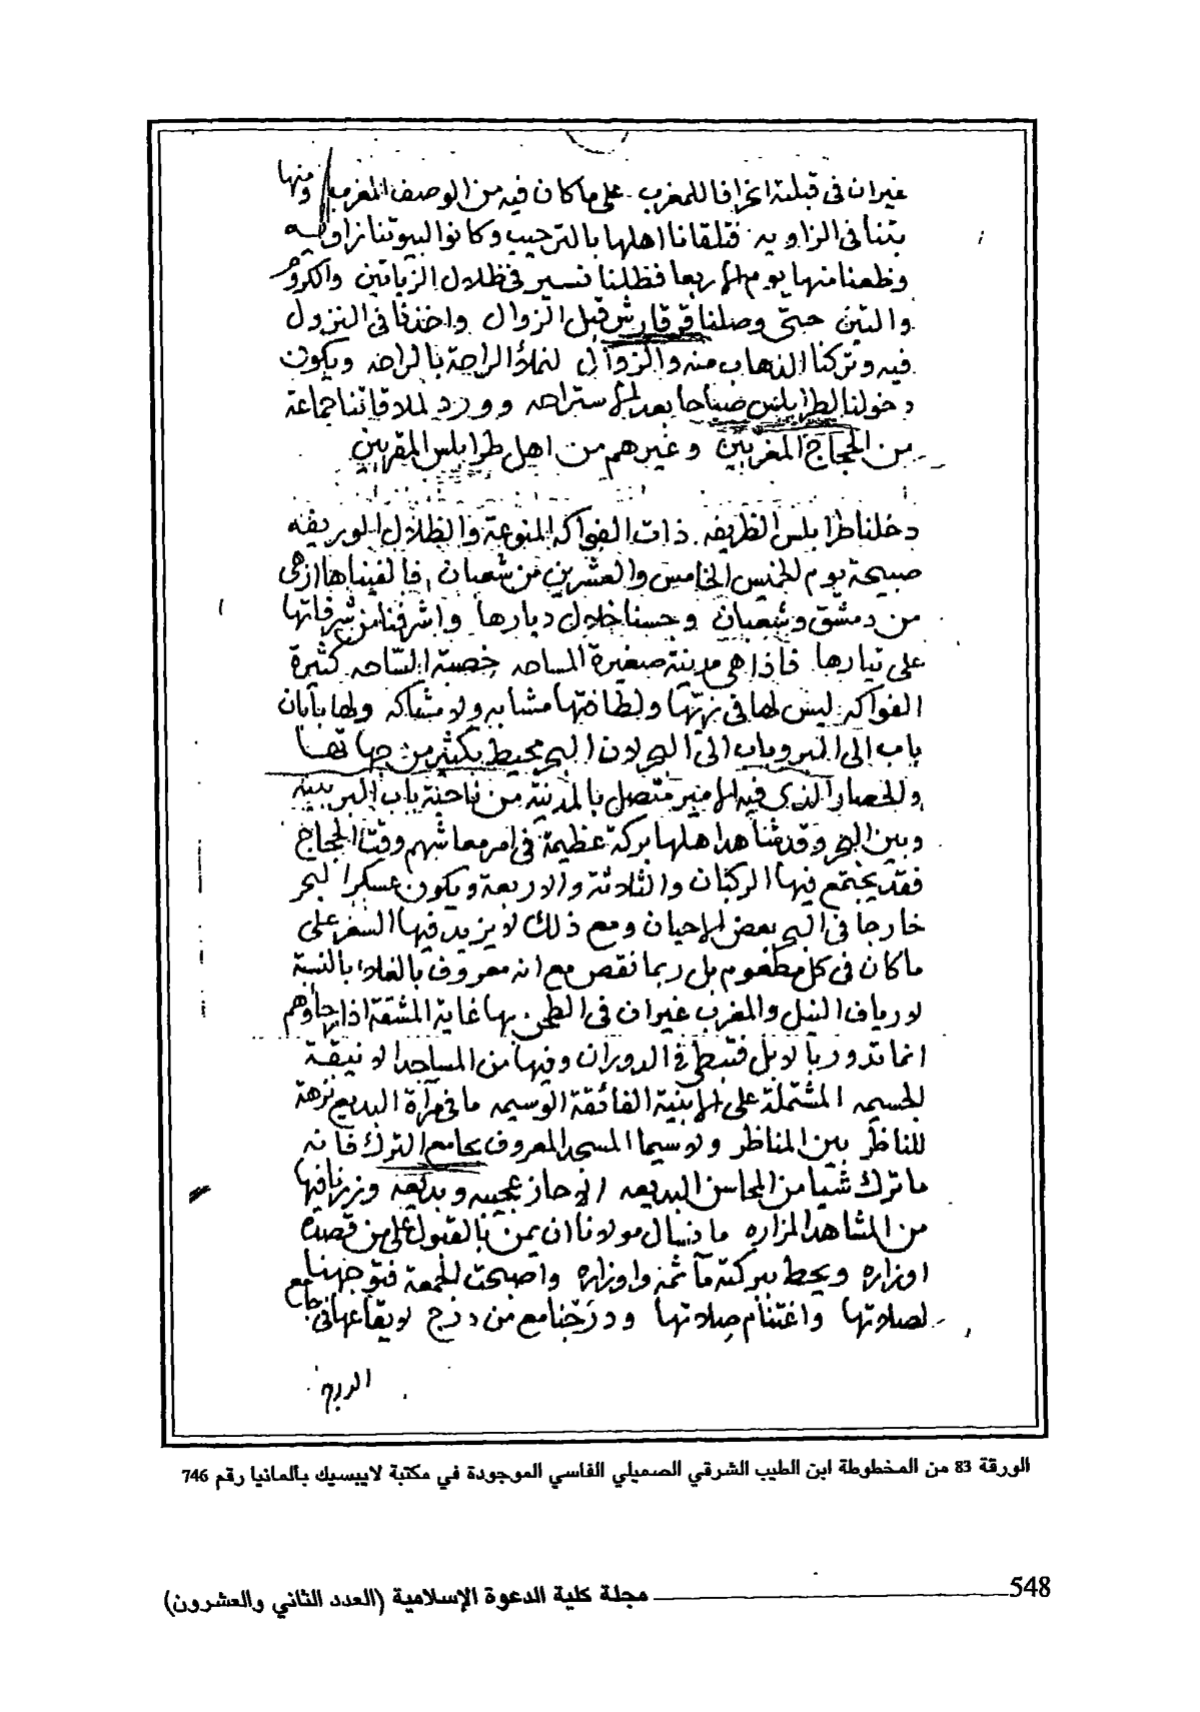 غيران في قبلته انحرافا للمغرب على ما كان فيه من الوصف المغرب ومنها
بتنا في الزاويه فتلقانا اهلها بالترحيب وكانوا لبيوتنا زاويه
وظعنا منها يوم الاربعا فظللنا نسير في ظلال الزياتين والكروم
والتين حتى وصلنا قرقارش قبل الزوال واخذنا في النزول
فيه وتركنا الذهاب منه والزوال لنملأ الراحة بالراحه ويكون
دخولنا لطرابلس صباحا بعد الاستراحه وورد لملاقاتنا جماعة
من الحجاج المغربين وغيرهم من اهل طرابلس المقربين
دخلنا طرابلس الظريفه ذات الفواكه المنوعة والظلال الوريفه
صبيحة يوم الخميس الخامس والعشرين من شعبان فالفيناها ازهى
من دمشق وشعبان وجسنا خلال ديارها واشرفنا من شرفاتها
على تيارها فاذا هي مدينة صغيرة المساحه خصبة الساحه كثيرة
الفواكه ليس لها في نزهتها ولطافتها مشابه ولا مشاكه ولها بابان
باب الى البر وباب الى البحر لان البحر محيط بكثير من جهاتها
والحصار الذي فيه الامير متصل بالمدينة من ناحية باب البر بينه
وبين البحر وقد شاهد اهلها بركة عظيمة في امر معاشهم وقت الحجاج
فقد يجتمع فيها الركبان والثلاثة والاربعة ويكون عسكر البحر
خارجا في البحر بعض الاحيان ومع ذلك لا يزيد فيها السعر على
ما كان في كل مطعوم بل ربما نقص مع انه معروف بالغلاء بالنسبة
لارياف النيل والمغرب غيران في الطحن بها غاية المشقة اذ ارحاؤهم
انما تدور بالابل فتبطئ في الدوران وفيها من المساجد الانيقة
الجسيمه المشتملة على الابنية الفائقة الوسيمه ما في مرآة البديع نزهة
للناظر بين المناظر ولا سيما المسجد المعروف بجامع الترك فانه
ما ترك شيا من المحاسن البديعه الا حاز عجيبه وبديعه وزرنا فيها
من المشاهد المزاره ما نسال مولانا ان يمن بالقبول على من قصده
اوزاره ويحط ببركته مآثمه واوزاره واصبحت الجمعة فتوجهنا
لصلاتها واغتنام صلاتها ودرجنا مع من درج لايقاعها في جامع
الدروج
الورقة 83 من المخطوطة ابن الطيب الشرقي الصميلي الفاسي الموجودة في مكتبة لايبسيك بألمانيا رقم 746
مجلة كلية الدعوة الإسلامية (العدد الثاني والعشرون) 548